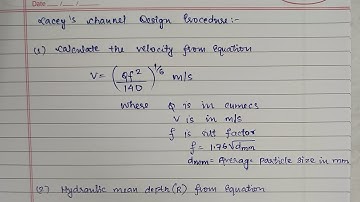 Date ___/___/___
Lacey's Channel Design Procedure:-
(1) Calculate the velocity from Equation
V = (Qf²/140)^1/6 m/s
Where Q is in cumecs
V is in m/s
f is silt factor
f = 1.76√dmm
dmm = Average particle size in mm
(2) Hydraulic mean depth (R) from Equation